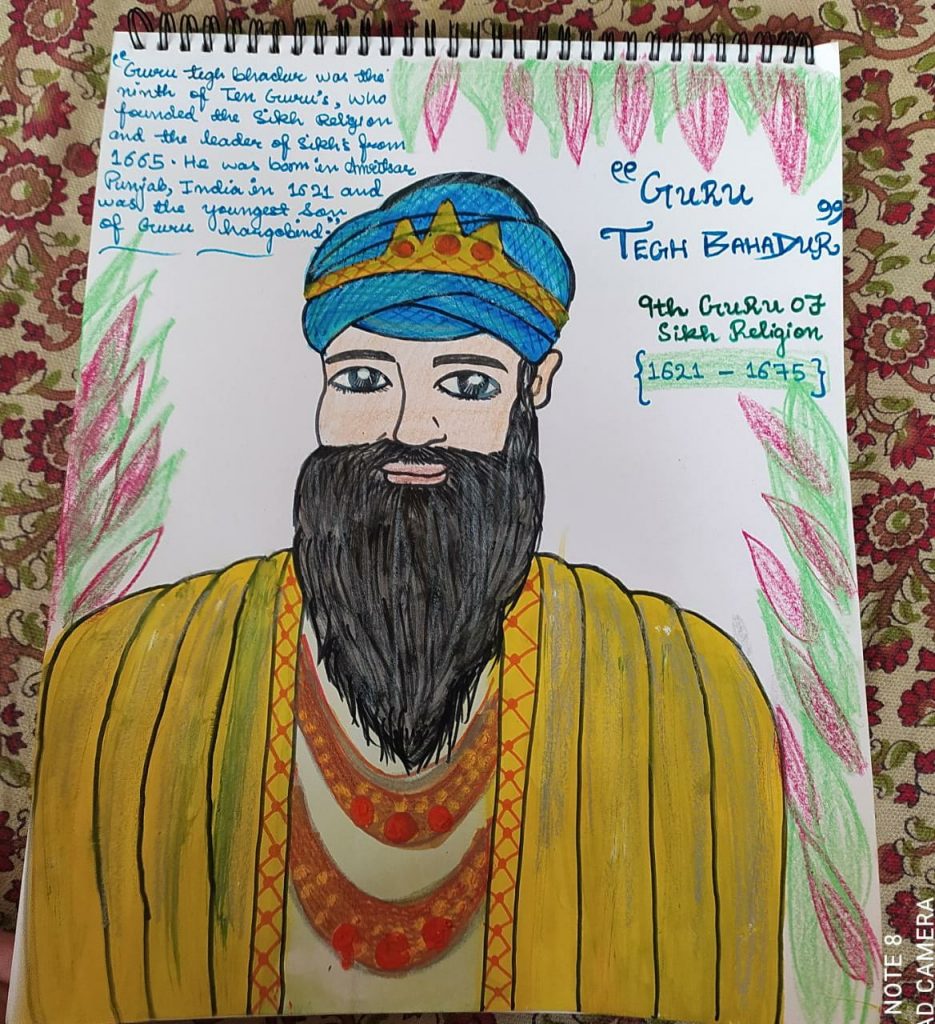 “Guru tegh bhadur was the
ninth of Ten Guru's, who
founded the Sikh Religion
and the leader of Sikh's from
1665. He was born in Amritsar
Punjab, India in 1621 and
was the youngest Son
of Guru hargobind.”
“GURU
TEGH BAHADUR”
9th GURU OF
Sikh Religion
{1621 – 1675}
NOTE 8
AD CAMERA